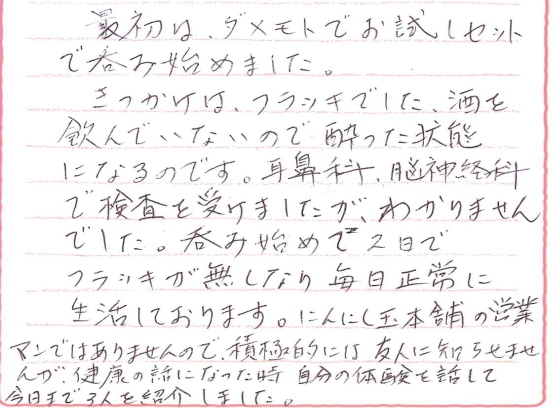 最初は、ダメモトでお試しセット
で呑み始めました。
きっかけは、フラツキでした、酒を
飲んでいないので酔った状態
になるのです。耳鼻科、脳神経科
で検査を受けましたが、わかりません
でした。呑み始めで2日で
フラツキが無しなり毎日正常に
生活しております。にんにく玉本舗の営業
マンではありませんので、積極的には友人に知らせませ
んが、健康の話になった時自分の体験を話して
今日まで3人を紹介しました。